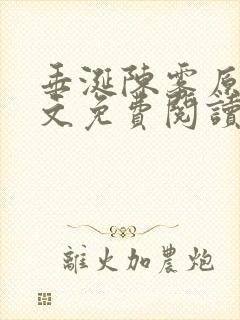 垂涎陳霧原
文免費閱讀
離火加農炮